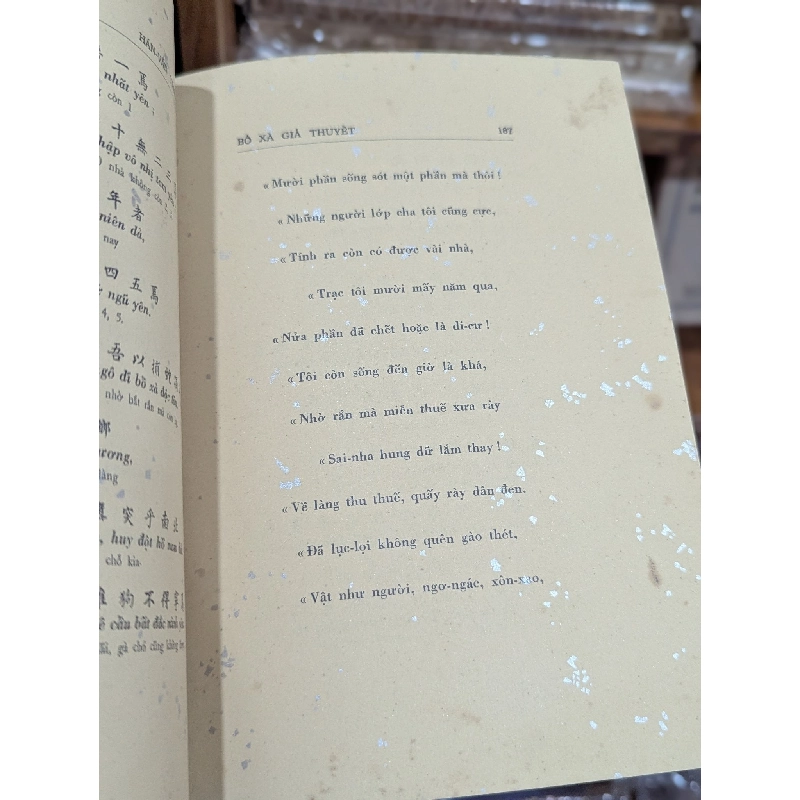 HÁN-VĂN
一 馬
nhất yên ;
còn 1
十 無 二 三
thập vô nhị tam
nhà không còn 2
年 者
niên dả,
nay
四 五 馬
ngũ yên.
4, 5.
吾 以 捕 蛇
ngô dĩ bồ xà độc
nhờ bắt rắn mà còn
鄉
ương,
làng
突 乎 南 北
, huy đột hồ nam
chổ kia
狗 不 得 寧
cầu bất đắc ninh
gà chó cũng không
BỒ XÀ GIẢ THUYẾT 187
« Mười phần sống sót một phần mà thôi !
« Những người lớp cha tôi cũng cực,
« Tính ra còn có được vài nhà,
« Trạc tôi mười mấy năm qua,
« Nửa phần đã chết hoặc là di-cư !
« Tôi còn sống đến giờ là khá,
« Nhờ rắn mà miễn thuế xưa rày
« Sai-nha hung dữ lắm thay !
« Về làng thu thuế, quấy rày dân đen.
« Đã lục-lọi không quên gào thét,
« Vật như người, ngơ-ngác, xôn-xao,